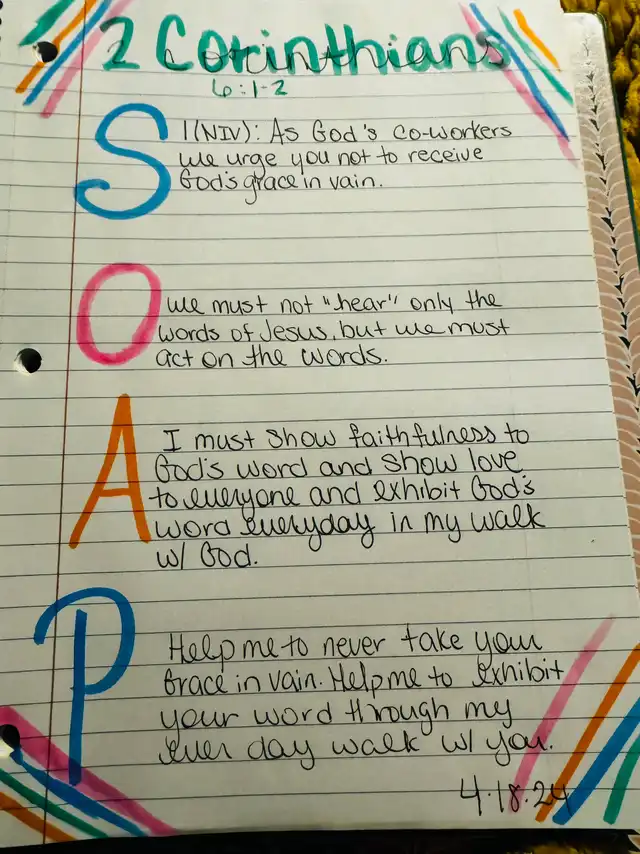 2 Corinthians
6:1-2
S
1(NIV): As God's co-workers
we urge you not to receive
God's grace in vain.
O
we must not "hear" only the
words of Jesus, but we must
act on the words.
A
I must show faithfulness to
God's word and show love
to everyone and exhibit God's
word everyday in my walk
w/ God.
P
Help me to never take your
Grace in vain. Help me to exhibit
your word through my
ever day walk w/ you.
4.18.24